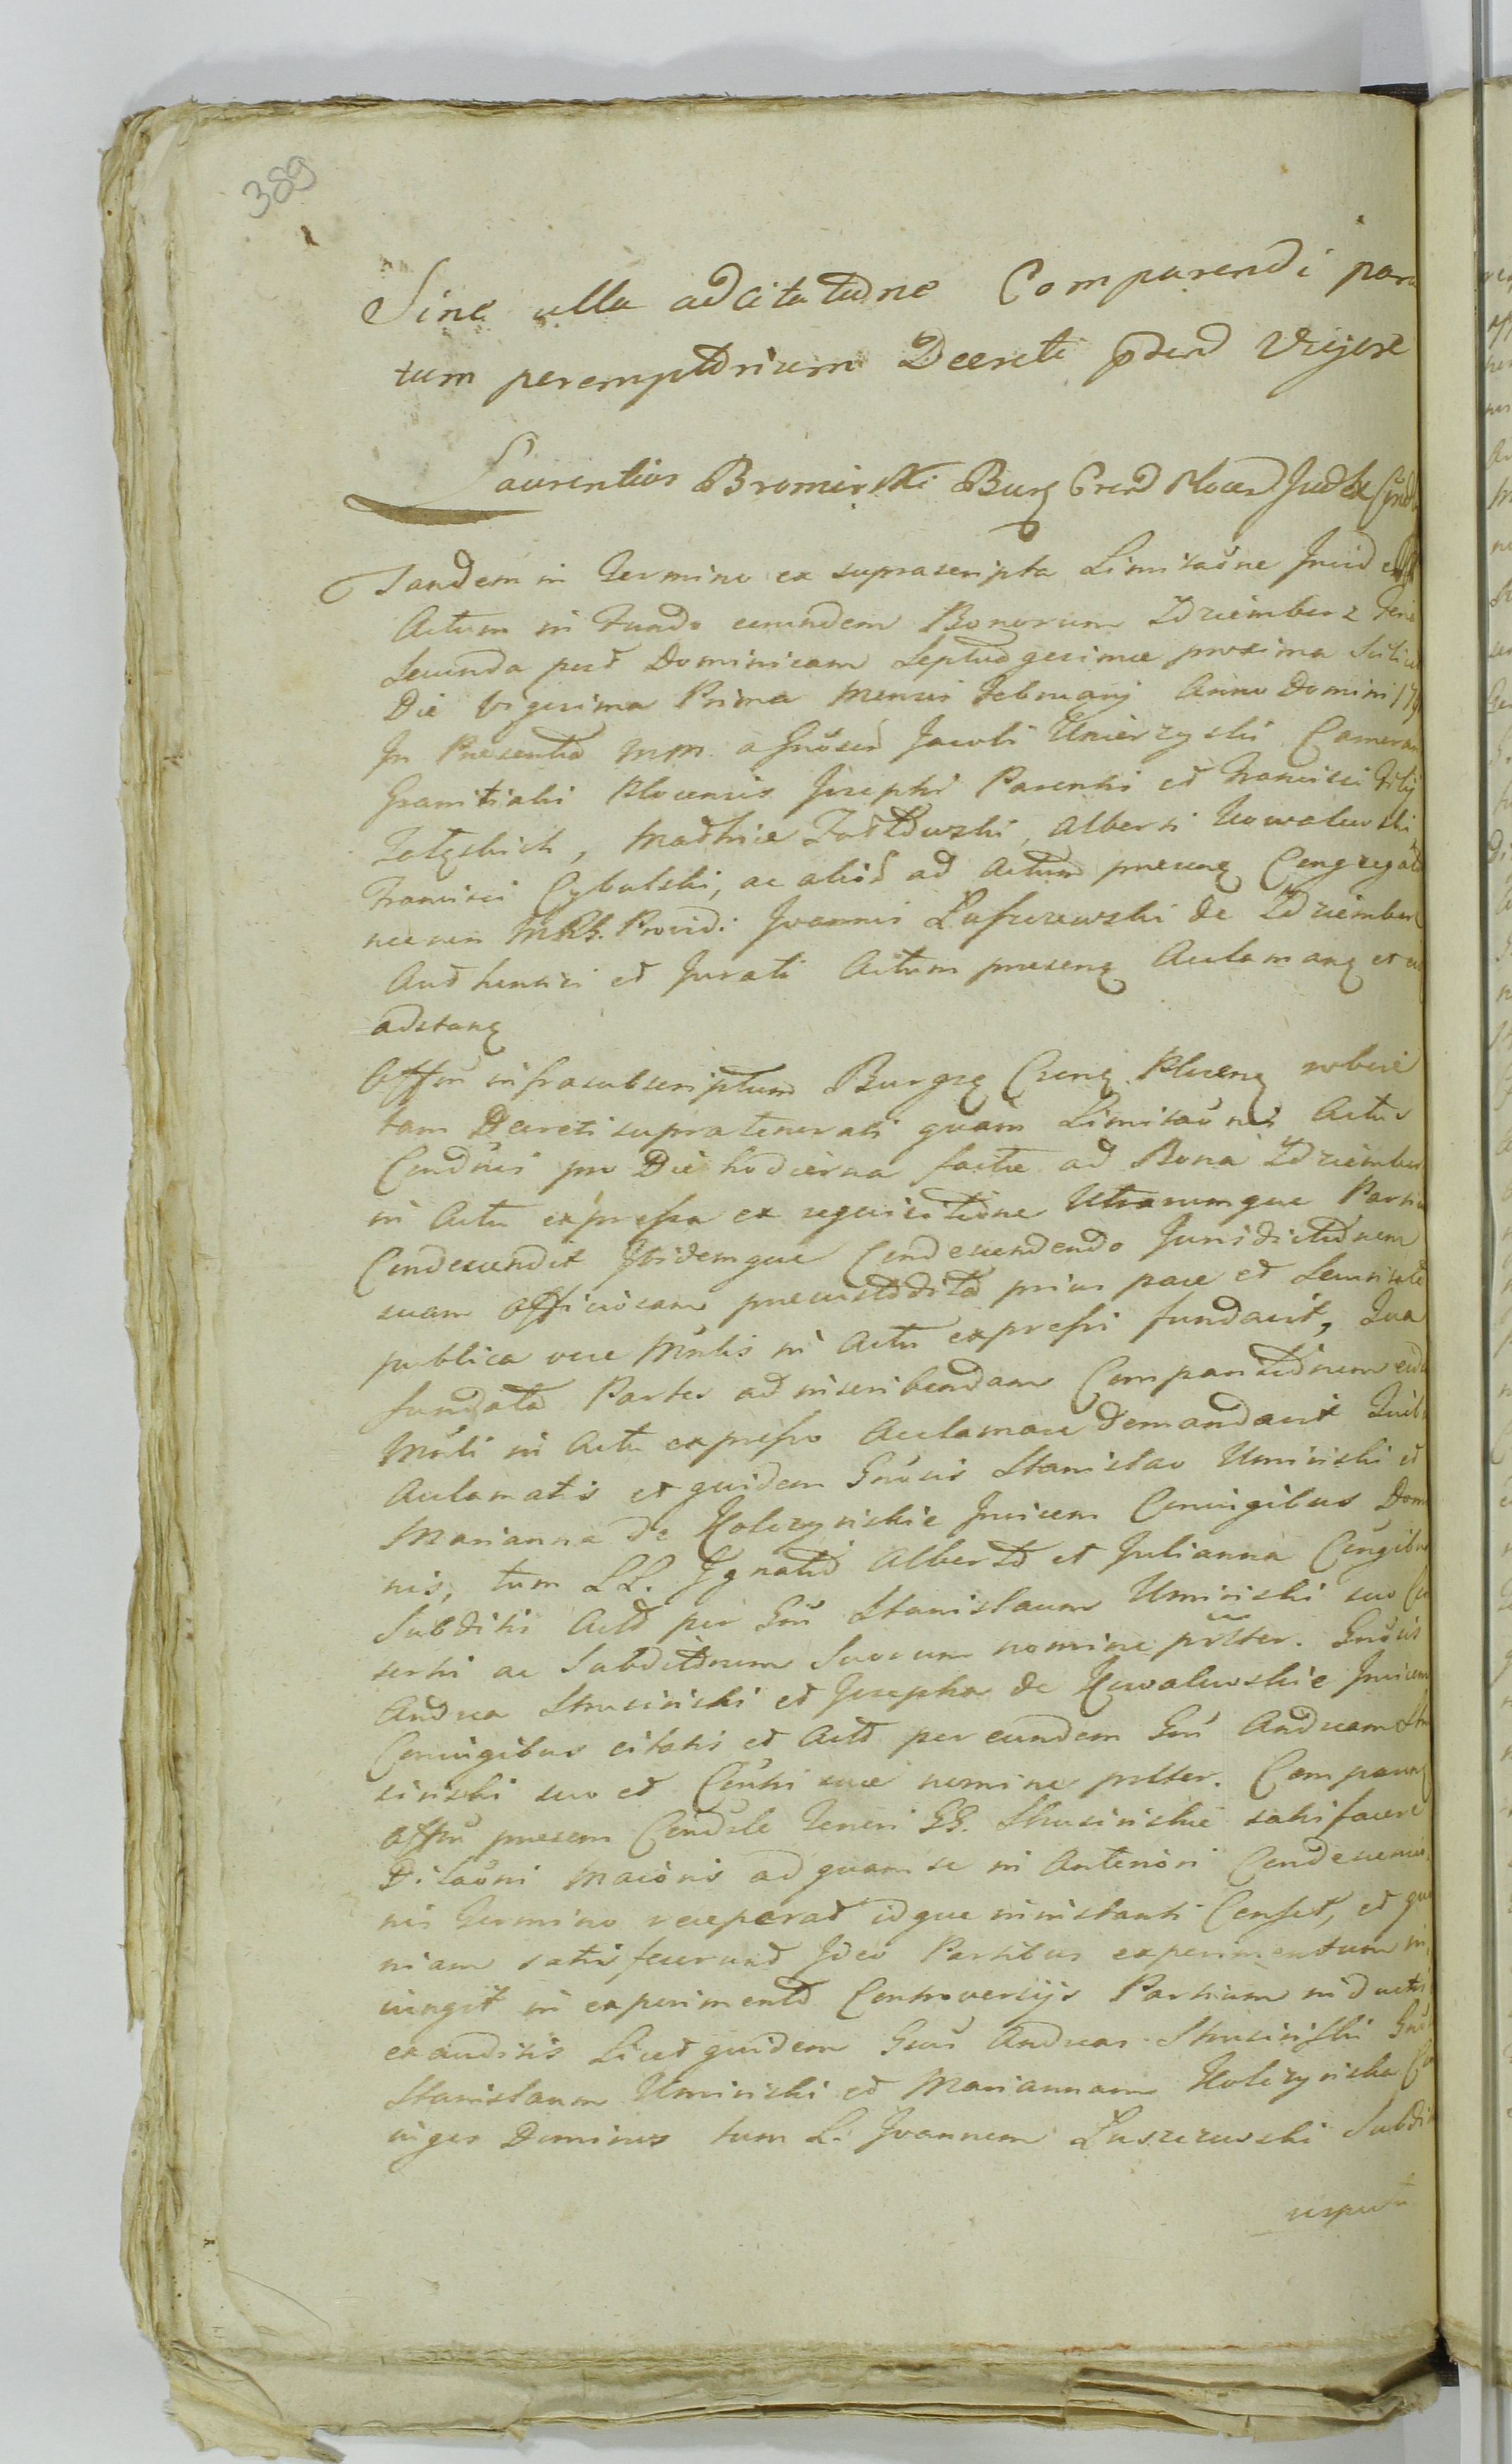 389
Sine ulla adcitatione Comparendi para
tum peremptorium Decreti pnti Vigore
Laurentius Bromirski Burg Cren Plocen Judex
Tandem in Termino ex suprascripta Limitaõne
Actum in Fundo eorundem Bonorum Zdziemborz Feria
Secunda post Dominicam Septuagesimae proxima Scilicet
Die Vigesima Prima Mensis Februarij Anno Domini 17
In Praesentia MM. a Gnõsor Jacobi Unierzyski Cameran
Granitialis Plocensis Josephi Parentis et Francisci Filij
Mathiae Alberti Kowalewski
Francisci Cybulski, ac alior ad Actum praesens Congregat
nec non Providi Joannis Luszczewski de Zdziembor
Authentici et Jurati Actum praesens Acclamans et
adstans
Offm infrascriptum Burgse Crens Plocens vobore
tam Decreti supratenorati quam Limitaõnis Actus
Condnis pro Die hodierna factae ad Bona Zdziembor
in Actu expressa ex requisitione Utrarumque Partiu
Condescendit Ibidemque Condescendendo Jurisdictionem
suam Officiosam praecustodita prius pace et Securitate
publica voce Mnlis in Actu expressi fundavit, Qua
fundata Partes ad inscribendam Comparitionem
Mnli in Actu expresso Acclamare Demandavit
Acclamatis et quidem Gnõsis Stanislao Uminski et
Marianna de Kolczynskie Invicem Coniugibus Dom
nis, tum LL. Ignatio Alberto et Julianna Coñgibus
Subditis Acto per Gnũ Stanislaum Uminski suo
sortis ac Subditorum Suorum nomine pr̃lter. Gnõsis
Andrea Strusinski et Josepha de Kowalewskie Invicem
Coniugibus citatis et Acto per eundem Gnũ Andream Stru
sinski suo et Cõnthi suae nomine prlter. Comparen
Offm praesens Condsle Teneri GG. Strusinskie satisfacere
Dilaõni Maioris ad quam se in Anteriori Condescensio
nis Termino receperat idque in instanti Censet, et quo
niam satisfecerunt Ideo Partibus experimentum in
iungit in experimento Controversijs Partium inductis
exauditis Licet quidem Gsus Andreas Strusinski
Stanislaum Uminski et Mariannam Kolczynska
iuges Dominos tum L. Joannem Luszczewski Subdit